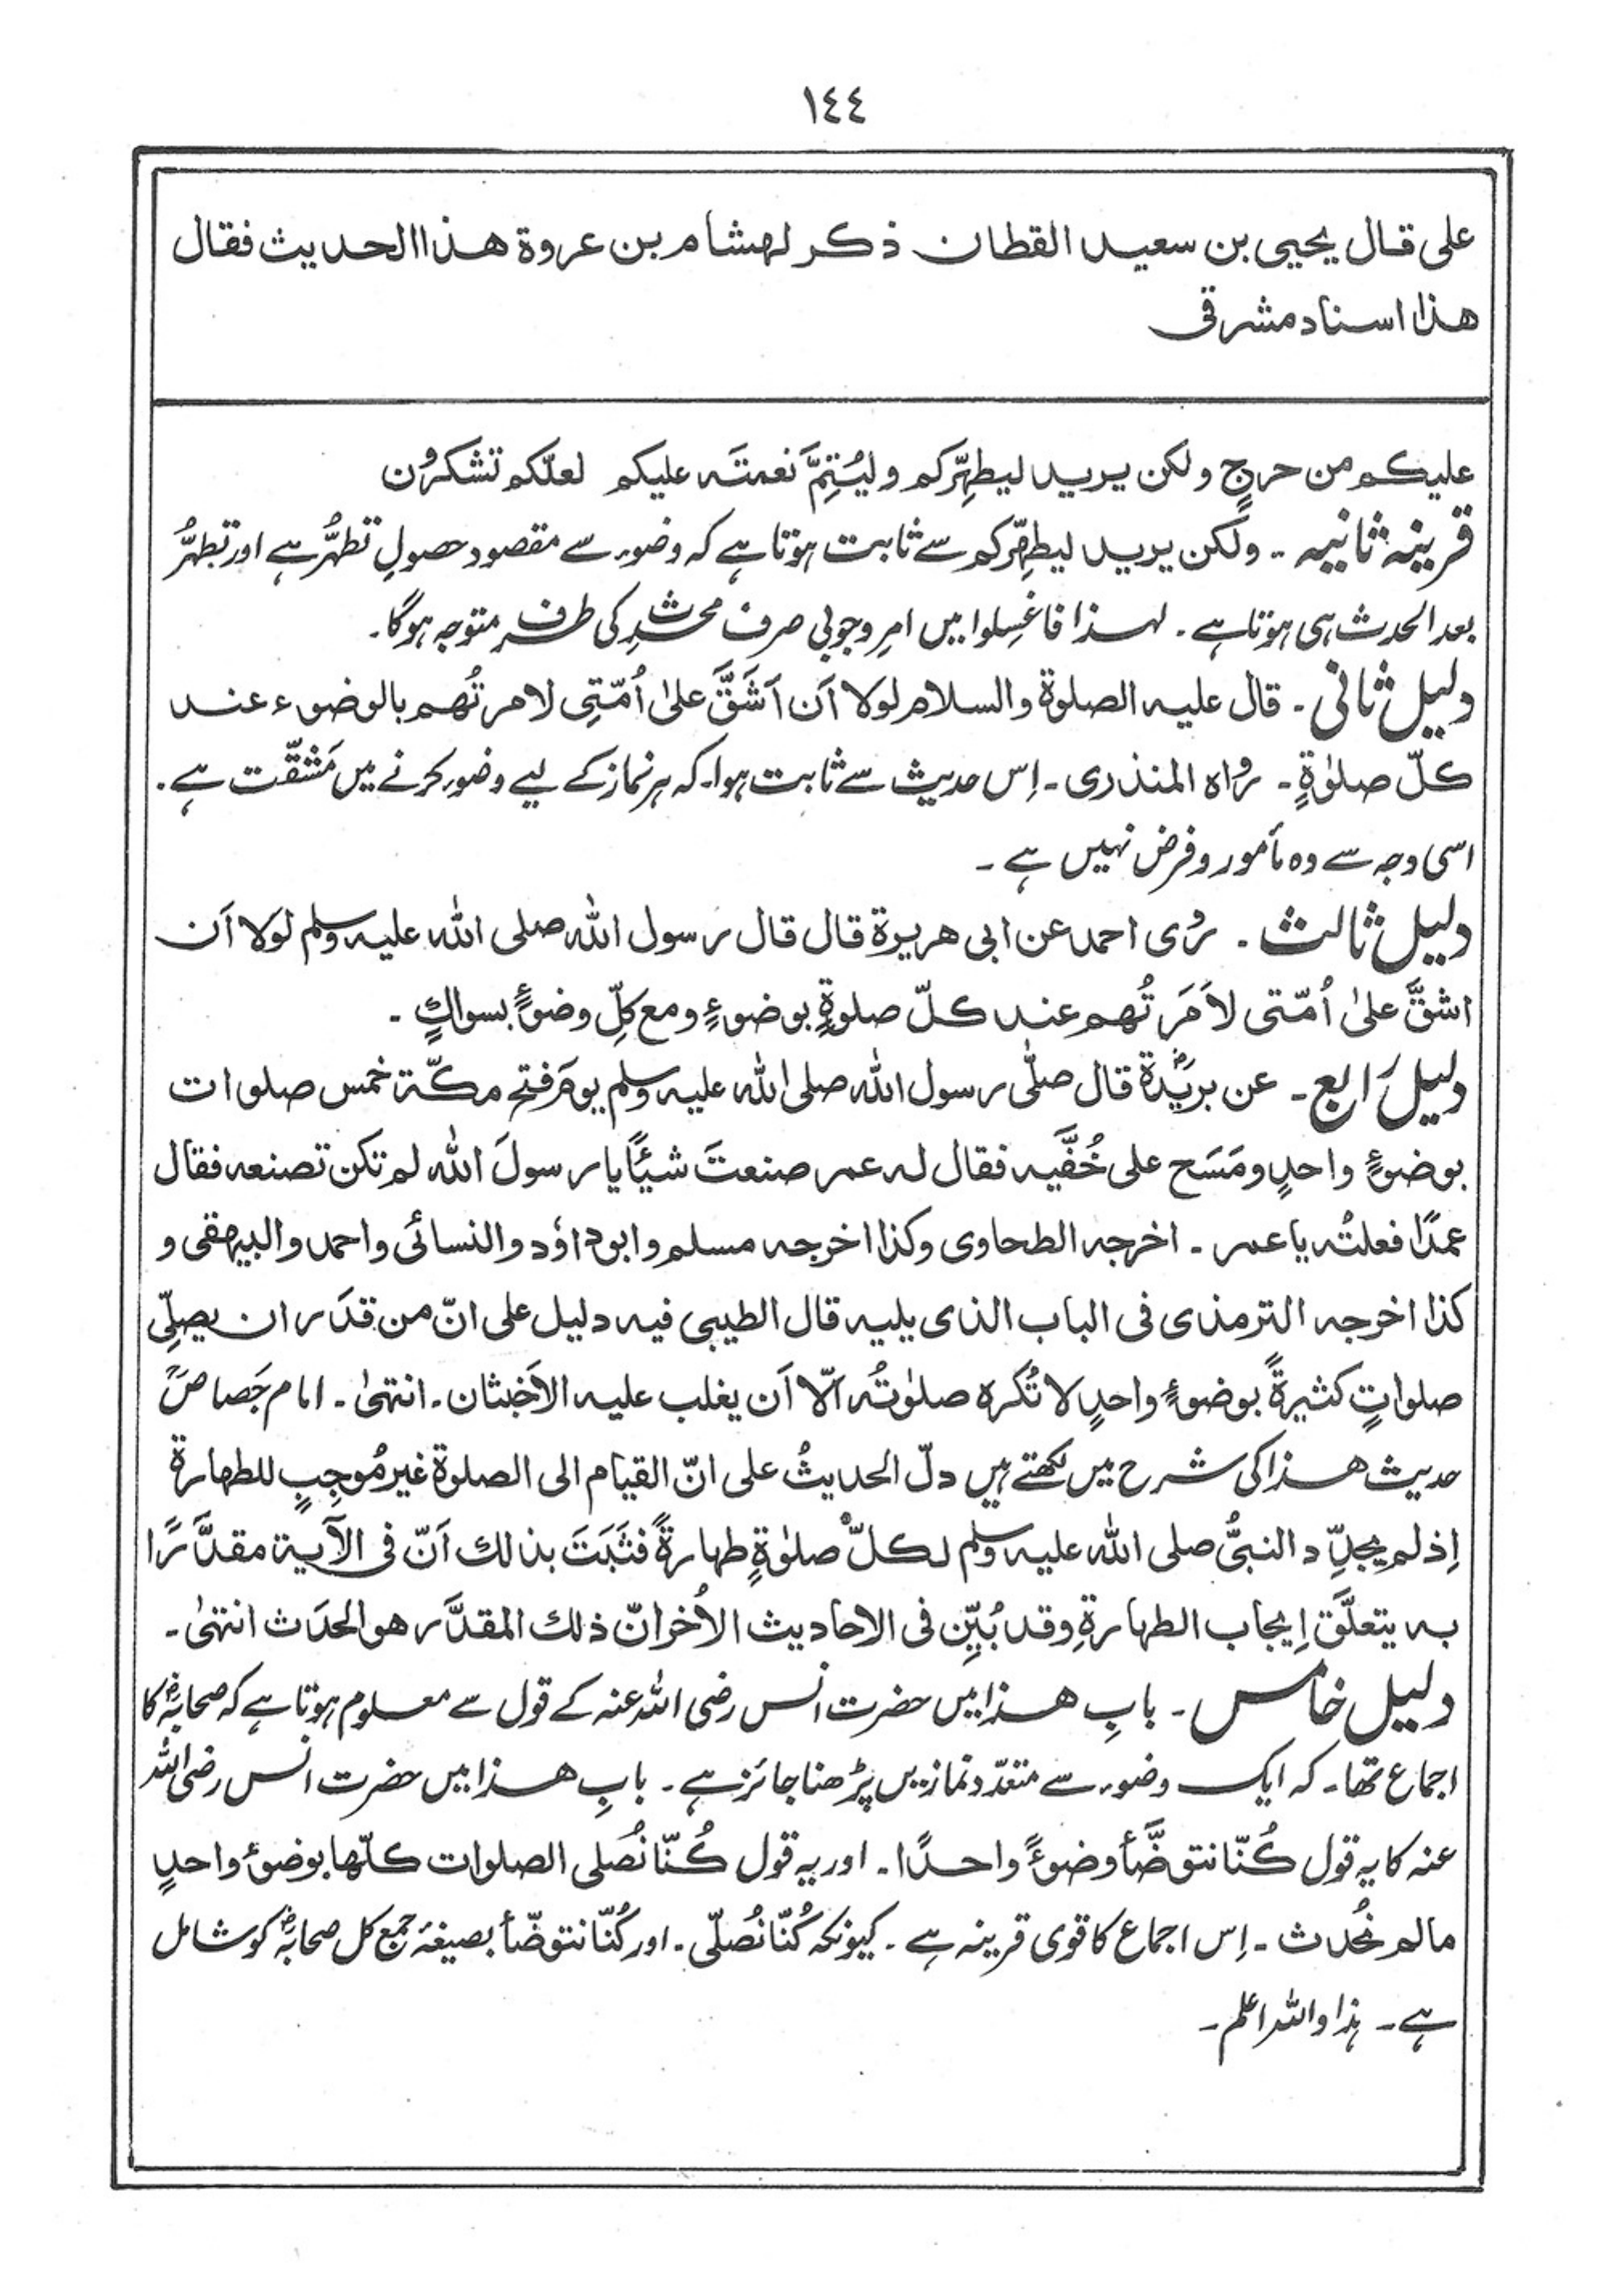 ١٤٤
علی قال یحیی بن سعید القطان ذکر لهشام بن عروة هذا الحدیث فقال
هذا اسناد مشرقی
علیکم من حرجٍ ولکن یرید لیطهِّرکم ولیُتِمَّ نعمتَه علیکم لعلّکم تشکرُون
قرینۂ ثانیہ ۔ ولکن یرید لیطهِّرکم سے ثابت ہوتا ہے کہ وضوء سے مقصود حصولِ تطہُّر ہے اور تطہُّر
بعد الحدث ہی ہوتا ہے ۔ لہٰذا فاغسِلوا میں امرِ وجوبی صرف مُحدِث کی طرف متوجہ ہوگا ۔
دلیل ثانی ۔ قال علیه الصلوٰة والسلام لولا اَن اَشَقَّ علیٰ اُمّتِی لامرتُهم بالوضوء عند
کلّ صلوٰةٍ ۔ رواہ المنذری ۔ اِس حدیث سے ثابت ہوا کہ ہر نماز کے لیے وضوء کرنے میں مَشقّت ہے ۔
اسی وجہ سے وہ مأمور و فرض نہیں ہے ۔
دلیل ثالث ۔ رُوی احمد عن ابی هریرة قال قال رسول الله صلی الله علیه وسلم لولا اَن
اشقَّ علیٰ اُمّتی لاَمَرتُهم عند کلّ صلوةٍ بوضوءٍ ومع کلِّ وضوءٍ بسواكٍ ۔
دلیل رَابع ۔ عن بریدةؓ قال صلّٰی رسول الله صلی الله علیه وسلم یومَ فتحِ مکّة خمس صلوات
بوضوءٍ واحدٍ ومَسَح علی خُفَّیه فقال له عمر صنعتَ شیئًا یا رسولَ الله لم تکن تصنعه فقال
عمدًا فعلتُه یا عمر ۔ اخرجه الطحاوی وکذا اخرجه مسلم وابوداؤد والنسائی واحمد والبیهقی و
کذا اخرجه الترمذی فی الباب الذی یلیه قال الطیبی فیه دلیل علی انّ من قدَر ان یصلِّی
صلواتٍ کثیرةً بوضوءٍ واحدٍ لا تُکره صلوٰتُه اِلّا اَن یغلب علیه الاَخبثان ۔ انتهیٰ ۔ امام جَصاصؒ
حدیث ہٰذا کی شرح میں لکھتے ہیں دلّ الحدیثُ علی انّ القیام الی الصلوة غیر مُوجِبٍ للطهارة
اِذ لم یجدِّد النبیُّ صلی الله علیه وسلم لکلّ صلوٰةٍ طهارةً فثَبَتَ بذلك اَنّ فی الآیة مقدَّرًا
به یتعلَّق اِیجاب الطهارةِ وقد بُیِّن فی الاحادیث الاُخر انّ ذلك المقدَّر هو الحدَث انتهیٰ ۔
دلیل خامس ۔ بابِ ہٰذا میں حضرت انس رضی اللہ عنہ کے قول سے معلوم ہوتا ہے کہ صحابہؓ کا
اجماع تھا ۔ کہ ایک وضوء سے متعدّد نمازیں پڑھنا جائز ہے ۔ بابِ ہٰذا میں حضرت انس رضی اللہ
عنہ کا یہ قول کُنّا نتوضّأ وضوءًا واحدًا ۔ اور یہ قول کُنّا نُصلی الصلوات کلّها بوضوءٍ واحدٍ
مالم نُحدث ۔ اِس اجماع کا قوی قرینہ ہے ۔ کیونکہ کُنّا نُصلّی ۔ اور کُنّا نتوضّأ بصیغۂ جمع کل صحابہؓ کو شامل
ہے ۔ ہٰذا واللہ اعلم ۔